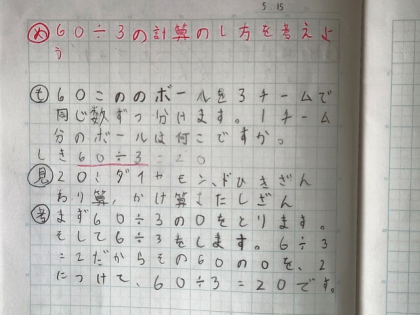 5.15
め 60÷3の計算のし方を考えよ
う
も 60このボールを3チームで
同じ数ずつ分けます。1チーム
分のボールは何こですか。
しき 60÷3=20
見 20こダイヤモンド、ひきざん
わり算、かけ算、たしざん
考 まず60÷3の0をとります。
そして6÷3をします。6÷3
=2だからその60の0を、2
につけて、60÷3=20です。